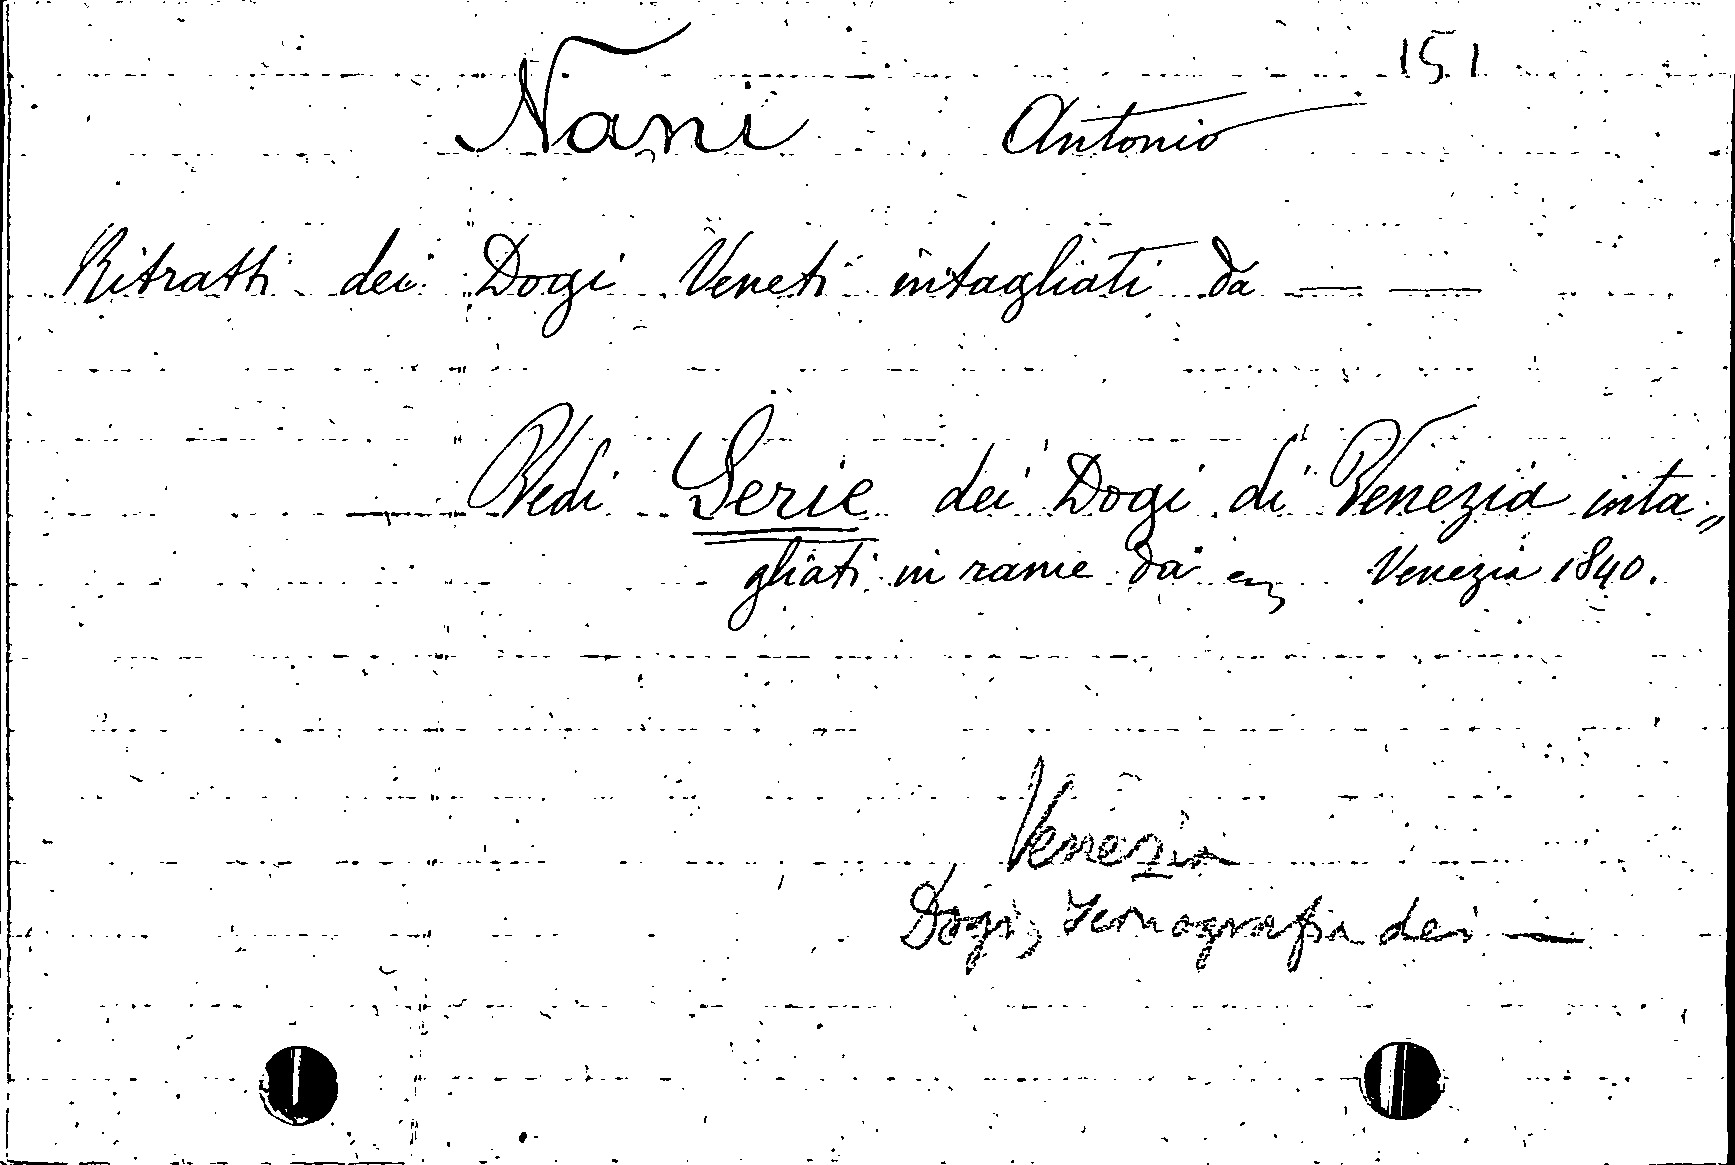 151
Nani Antonio
Ritratti dei Dogi Veneti intagliati da — —
Vedi Serie dei Dogi di Venezia inta„
gliati in rame da Venezia 1840.
Venezia
Dogi, Iconografia dei —